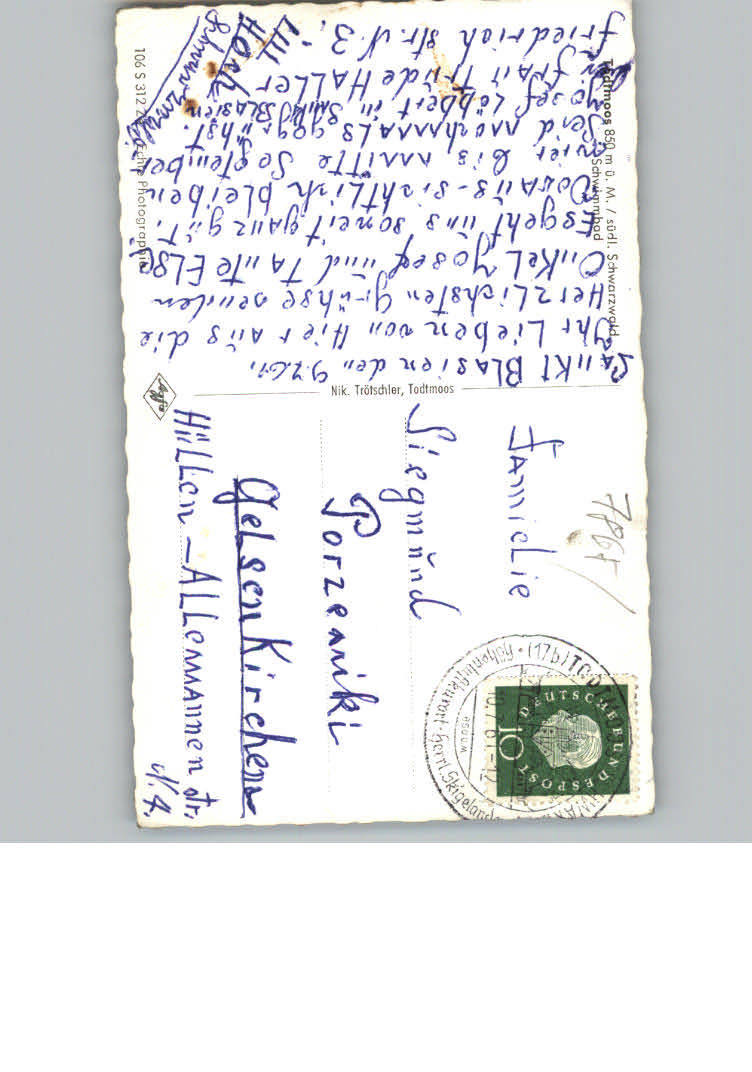 Todtmoos 850 m ü. M. / südl. Schwarzwald
Schwimmbad
Sankt Blasien den 9.7.61.
Ihr Lieben von Hier aus die
Herzlichsten grühse senden
Onkel Josef und Tante Else
Es geht uns soweit ganz gut.
Voraus-sichtlich bleiben
wier bis mitte September
Seid nochmals gegrühst.
Josef Löbbert in Sankt Blasien
bei Frau Trude Haller
Friedrich str. N. 3.
im Hoch
Schwarzwald
106 S 312
Echte Photographie
Nik. Trötschler, Todtmoos
Agfa
7865
Familie
Siegmund
Porzeaniki
Gelsenkirchen
Hüllen - Allemannen str.
N. 4.
DEUTSCHE BUNDESPOST
10
(17b) TODTMOOS
Höhenluftkurort · Herrl. Skigelände